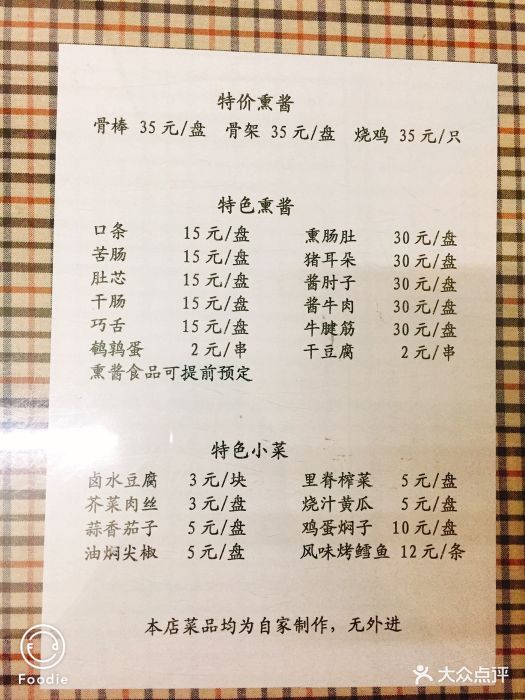 特价熏酱
骨棒 35元/盘 骨架 35元/盘 烧鸡 35元/只
特色熏酱
口条 15元/盘 熏肠肚 30元/盘
苦肠 15元/盘 猪耳朵 30元/盘
肚芯 15元/盘 酱肘子 30元/盘
干肠 15元/盘 酱牛肉 30元/盘
巧舌 15元/盘 牛腱筋 30元/盘
鹌鹑蛋 2元/串 干豆腐 2元/串
熏酱食品可提前预定
特色小菜
卤水豆腐 3元/块 里脊榨菜 5元/盘
芥菜肉丝 3元/盘 烧汁黄瓜 5元/盘
蒜香茄子 5元/盘 鸡蛋焖子 10元/盘
油焖尖椒 5元/盘 风味烤鳕鱼 12元/条
本店菜品均为自家制作，无外进
Foodie
大众点评